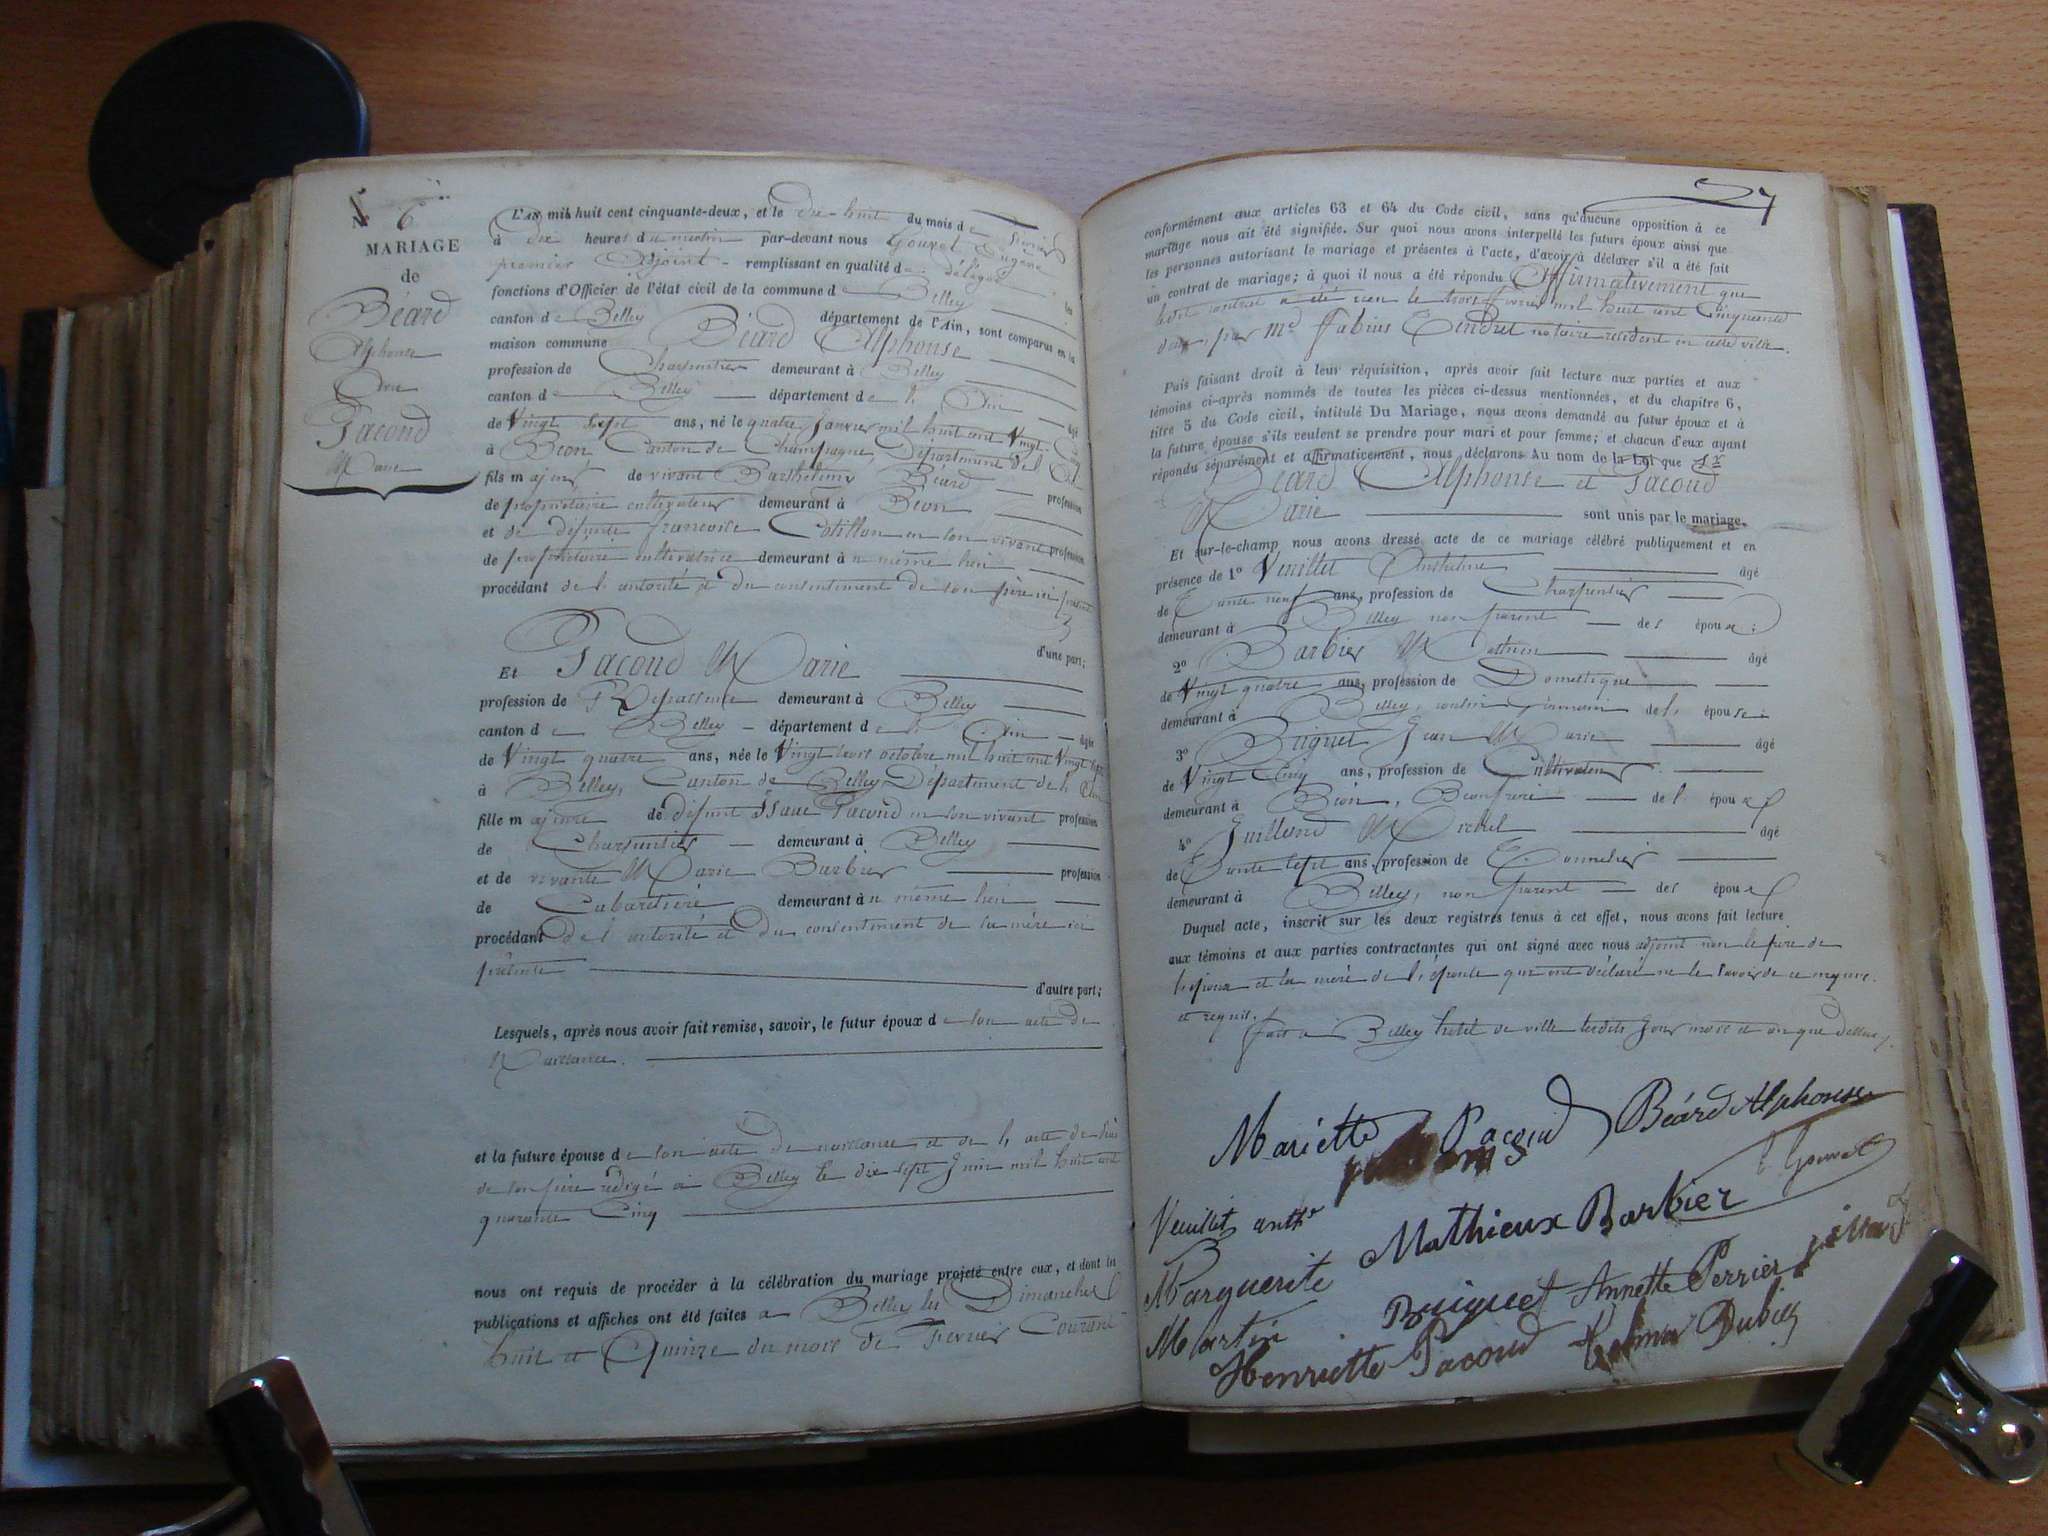 N 6
MARIAGE
de
Béard
Alphonse
Avec
Pacoud
Marie
L'an mil huit cent cinquante-deux, et le dix-huit du mois de février
à dix heures du matin par-devant nous Gouvet Eugène
premier Adjoint - remplissant en qualité de délégué les
fonctions d'Officier de l'état civil de la commune de Belley
canton de Belley département de l'Ain, sont comparus en la
maison commune Béard Alphonse
profession de Charpentier demeurant à Belley
canton de Belley département de l'Ain âgé
de Vingt sept ans, né le quatre Janvier mil huit cent Vingt Cinq
à Béon Canton de Champagne, Département de l'Ain
fils majeur de vivant Barthelemy Béard profession
de propriétaire cultivateur demeurant à Béon
et de défunte francoise Cotillon en son vivant profession
de propriétaire cultivatrice demeurant à u même lieu
procédant de l'autorité et du consentement de son père ici présent
d'une part;
Et Pacoud Marie
profession de Repasseuse demeurant à Belley
canton de Belley - département de l'Ain - âgée
de Vingt quatre ans, née le Vingt trois octobre mil huit cent Vingt sept
à Belley, Canton de Belley Département de l'Ain
fille majeure de défunt Isaac Pacoud en son vivant profession
de Charpentier demeurant à Belley
et de vivante Marie Barbier profession
de Cabaretière demeurant à u même lieu
procédant de l'autorité et du consentement de sa mère ici
présente d'autre part;
Lesquels, après nous avoir fait remise, savoir, le futur époux de son acte de
Naissance.
et la future épouse de son acte de naissance et de l'acte de décès
de son père rédigé à Belley le dix sept Juin mil huit cent
quarante Cinq
nous ont requis de procéder à la célébration du mariage projeté entre eux, et dont les
publications et affiches ont été faites à Belley les Dimanches
huit et Quinze du mois de Fevrier Courant
27
conformément aux articles 63 et 64 du Code civil, sans qu'aucune opposition à ce
mariage nous ait été signifiée. Sur quoi nous avons interpellé les futurs époux ainsi que
les personnes autorisant le mariage et présentes à l'acte, d'avoir à déclarer s'il a été fait
un contrat de mariage; à quoi il nous a été répondu Affirmativement que
ledit contrat a été recu le trois février mil huit cent Cinquante
deux, par Me Fabius Tendret notaire résident en cette ville.
Puis faisant droit à leur réquisition, après avoir fait lecture aux parties et aux
témoins ci-après nommés de toutes les pièces ci-dessus mentionnées, et du chapitre 6,
titre 5 du Code civil, intitulé Du Mariage, nous avons demandé au futur époux et à
la future épouse s'ils veulent se prendre pour mari et pour femme; et chacun d'eux ayant
répondu séparément et affirmativement, nous déclarons Au nom de la Loi que Sr
Béard Alphonse et Pacoud
Marie sont unis par le mariage.
Et sur-le-champ nous avons dressé acte de ce mariage célébré publiquement et en
présence de 1° Veuillet Anthelme âgé
de Trente neuf ans, profession de Charpentier
demeurant à Belley non parent des époux;
2° Barbier Mathieu âgé
de Vingt quatre ans, profession de Domestique
demeurant à Belley, cousin germain de l'épouse
3° Buguet Jean Marie âgé
de Vingt Cinq ans, profession de Cultivateur
demeurant à Béon, Beaufrère de l'époux
4° Juilland Michel âgé
de Trente sept ans, profession de Tonnelier
demeurant à Belley, non parent des époux
Duquel acte, inscrit sur les deux registres tenus à cet effet, nous avons fait lecture
aux témoins et aux parties contractantes qui ont signé avec nous adjoint non le père de
l'époux et la mère de l'épouse qui ont déclaré ne le savoir de ce enquis
et requis.
fait à Belley hotel de ville lesdits Jour mois et an que dessus.
Mariette Pacoud Béard Alphonse
Veuillet anthe Mathieux Barbier
Marguerite
Martin Buiguet Annette Perrier
Henriette Pacoud Dubois